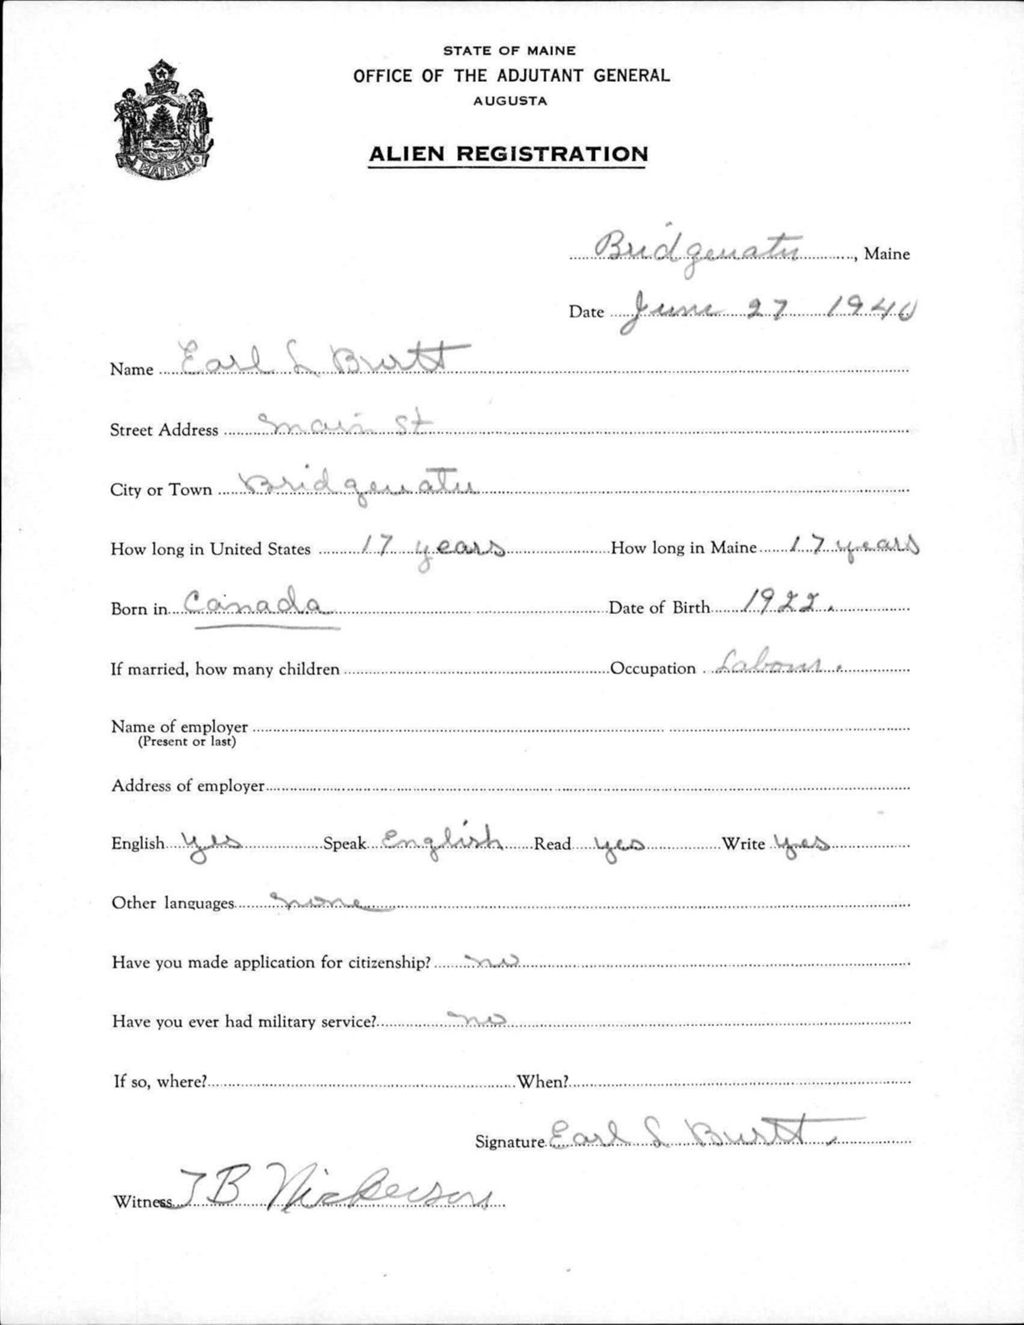 STATE OF MAINE
OFFICE OF THE ADJUTANT GENERAL
AUGUSTA
ALIEN REGISTRATION
MAINE
Bridgewater, Maine
Date June 27 1940
Name Earl L Burtt
Street Address Main St
City or Town Bridgewater
How long in United States 17 years How long in Maine 17 years
Born in Canada Date of Birth 1922.
If married, how many children Occupation Labour.
Name of employer
(Present or last)
Address of employer
English yes Speak English Read yes Write yes
Other languages none
Have you made application for citizenship? no
Have you ever had military service? no
If so, where? When?
Signature Earl L Burtt.
Witness T B Nickerson